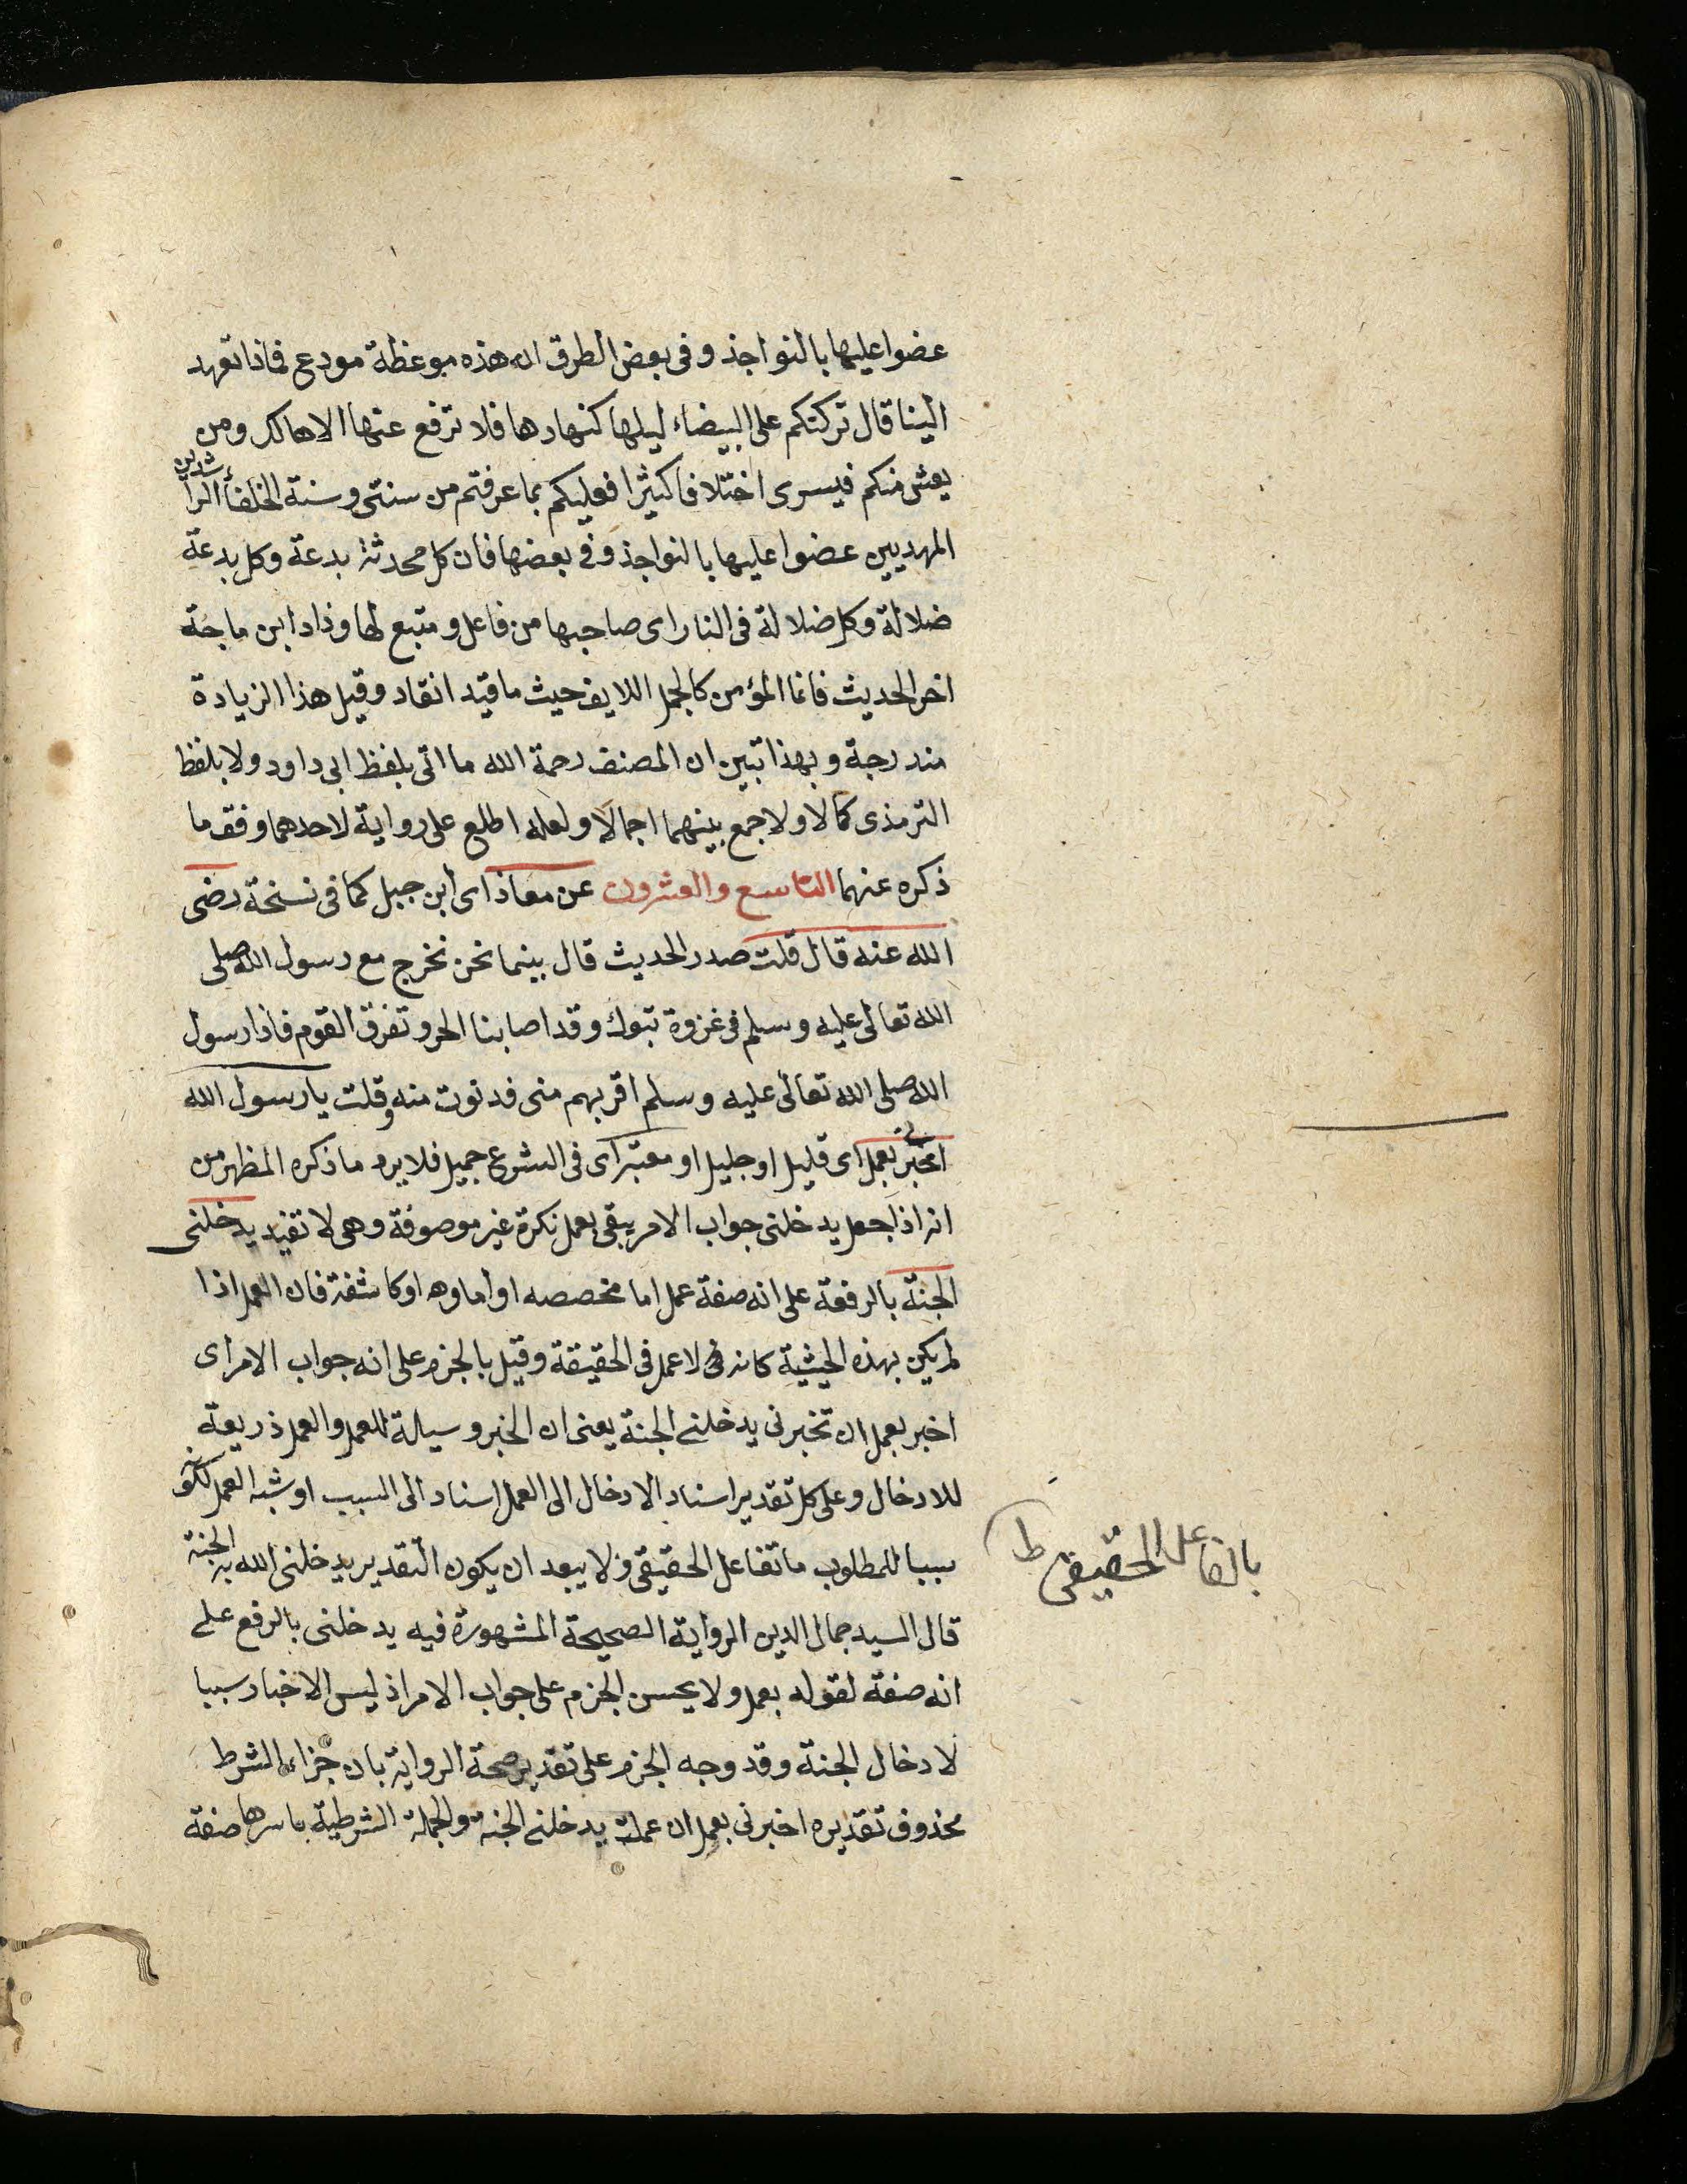 عضوا عليها بالنواجذ وفى بعض الطرق ان هذه موعظة مودع فماذا تعهد
الينا قال تركتكم على البيضاء ليلها كنهارها فلا ترفع عنها الا هالك ومن
يعش منكم فيسرى اختلافا كثيرا فعليكم بما عرفتم من سنتى وسنة الخلفأ الراشدين
المهديين عضوا عليها بالنواجذ وفى بعضها فان كل محدثة بدعة وكل بدعة
ضلالة وكل ضلالة فى النار اى صاحبها من فاعل ومتبع لها وزاد ابن ماجة
اخر الحديث فانما المؤمن كالجمل اللايف حيث ما قيد انقاد وقيل هذا الزيادة
مندرجة وبهذا تبين ان المصنف رحمة الله ما اتى بلفظ ابى داود ولا بلفظ
الترمذى كمالا ولا جمع بينهما اجمالا ولعله اطلع على رواية لاحدهما وفق ما
ذكره عنهما التاسع والعشرون عن معاذ اى ابن جبل كما فى نسخة رضى
الله عنه قال قلت صدر الحديث قال بينما نحن نخرج مع رسول الله صلى
الله تعالى عليه وسلم فى غزوة تبوك وقد اصابنا الحر وتفرق القوم فاذا رسول
الله صلى الله تعالى عليه وسلم اقربهم منى فدنوت منه وقلت يا رسول الله
اخبرنى بعمل اى قليل او جليل او معتبر اى فى الشرع جميل فلا يرد ما ذكره المظهر من
انه اذا جعل يدخلنى جواب الامر يبقى بعمل نكرة غير موصوفة وهى لا تفيد يدخلنى
الجنة بالرفعة على انه صفة عمل اما مخصصه او اماوه او كاشفة فان العمل اذا
لم يكن بهذه الحيثية كانه لا عمل فى الحقيقة وقيل بالجزم على انه جواب الامر اى
اخبر بعمل ان تخبرنى يدخلنى الجنة يعنى ان الخبر وسيلة للعمل والعمل ذريعة
للادخال وعلى كل تقدير اسناد الادخال الى العمل اسناد الى السبب او شبه العمل لكونه
سببا للمطلوب ماتفاعل الحقيقى ولا يبعد ان يكون التقدير يدخلنى الله به الجنة
بالفاعل الحقيقى ط
قال السيد جمال الدين الرواية الصحيحة المشهورة فيه يدخلنى بالرفع على
انه صفة لقوله بعمل ولا يحسن الجزم على جواب الامر اذ ليس الاخبار سببا
لادخال الجنة وقد وجه الجزم على تقدير صحة الرواية بان جزاء الشرط
محذوف تقديره اخبرنى بعمل ان عملته يدخلنى الجنة والجملة الشرطية باسرها صفة